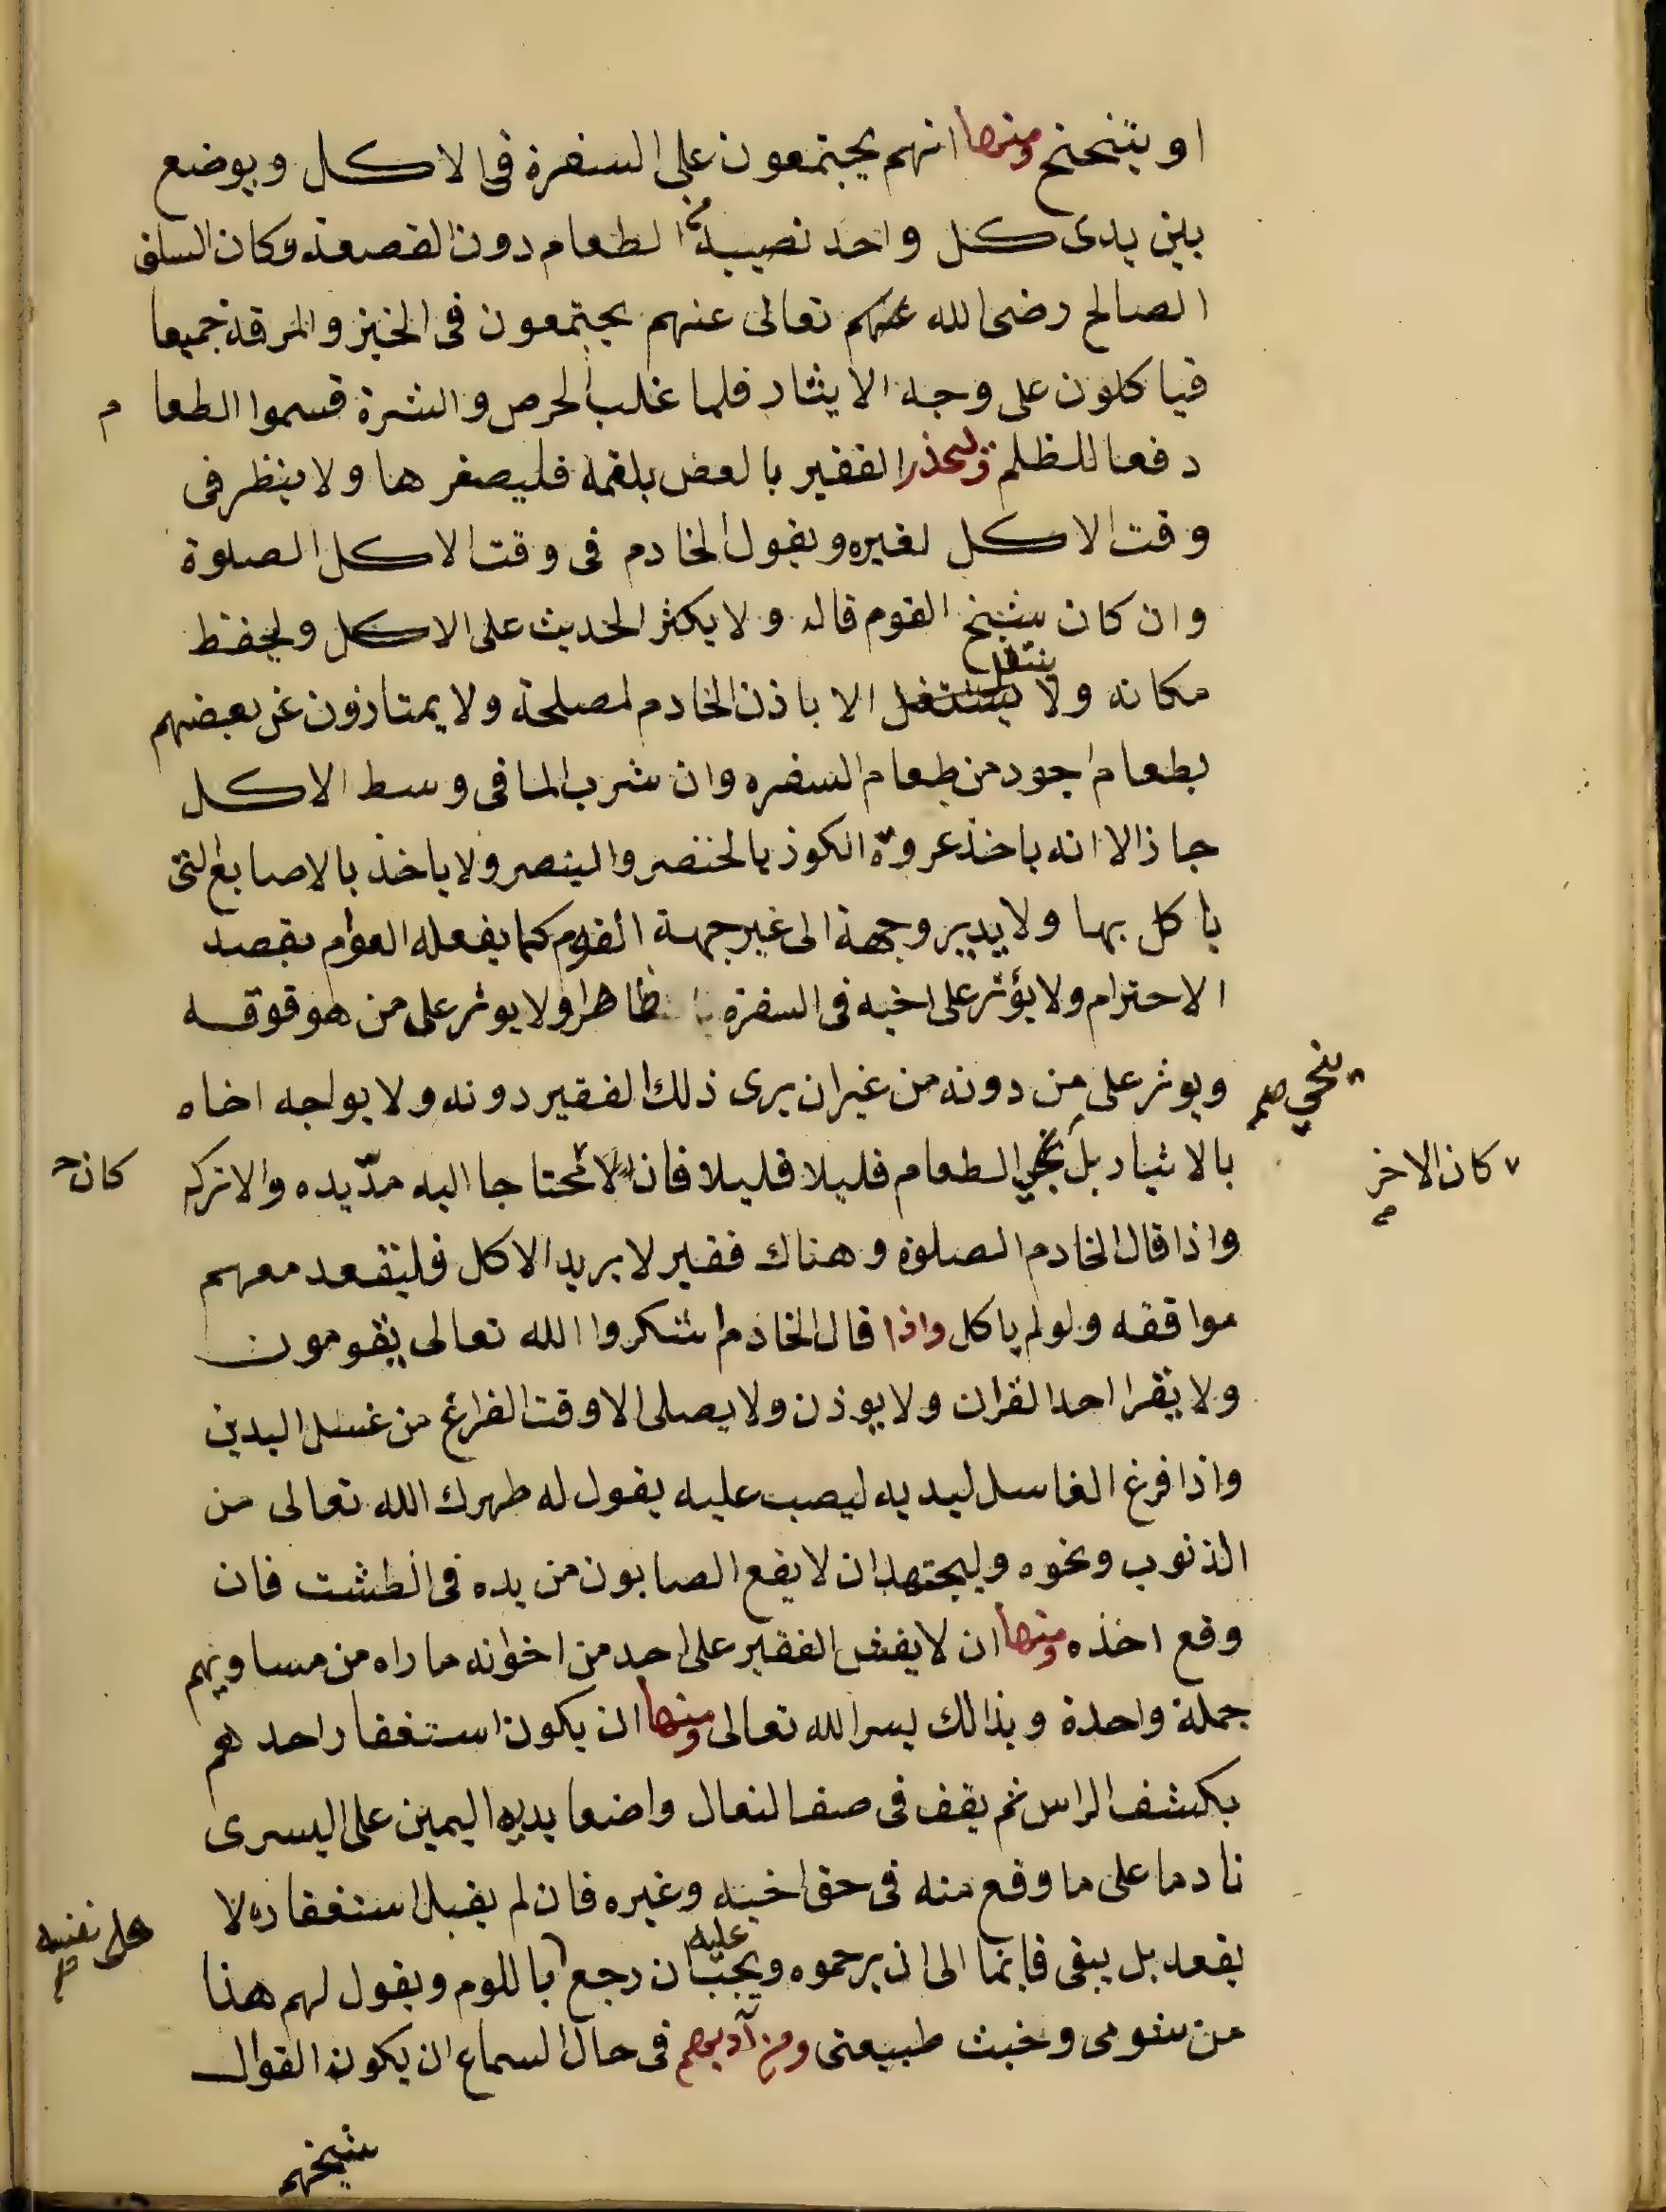 او يتنحنح ومنها انهم يجتمعون على السفرة فى الاكل ويوضع
بين يدى كل واحد نصيبه من الطعام دون القصعة وكان السلف
الصالح رضى الله عنهم تعالى عنهم يجتمعون فى الخبز والمرقة جميعا
فياكلون على وجه الايثار فلما غلب الحرص والشرة قسموا الطعام
دفعا للظلم وليحذر الفقير بالعض بلقمة فليصغرها ولا ينظر فى
وقت الاكل لغيره ويقول الخادم فى وقت الاكل الصلوة
وان كان شيخ القوم قاله ولا يكثر الحديث على الاكل وليحفظ
مكانه ولا ينتقل الا باذن الخادم لمصلحة ولا يمتازون عن بعضهم
بطعام اجود من طعام السفره وان شرب الما فى وسط الاكل
جاز الا انه ياخذ عروة الكوز بالخنصر والبنصر ولا ياخذ بالاصابع التى
ياكل بها ولا يدير وجهة الى غير جهة القوم كما يفعله العوام بقصد
الاحترام ولا يؤثر على اخيه فى السفرة ظاهرا ولا يوثر على من هو فوقه
ويوثر على من دونه من غير ان يرى ذلك الفقير دونه ولا يواجه اخاه
ينحي صح
بالاثيار بل ينحي الطعام قليلا قليلا فان محتاجا اليه مدّ يده والا تركه
كان الاخر
كان
واذا قال الخادم الصلوة وهناك فقير لا يريد الاكل فليقعد معهم
موافقه ولو لم ياكل واذا قال الخادم اشكروا الله تعالى يقومون
ولا يقرا احد القران ولا يوذن ولا يصلى الا وقت الفراغ من غسل اليدين
واذا فرغ الغاسل ليديه ليصب عليه يقول له طهرك الله تعالى من
الذنوب ونحوه وليجتهد ان لا يقع الصابون من يده فى الطشت فان
وقع اخذه ومنها ان لا يفش الفقير على احد من اخوانه ما راه من مساويهم
جملة واحدة وبذالك يسر الله تعالى ومنها ان يكون استغفار احدهم
بكشف الراس ثم يقف فى صف النعال واضعا يديه اليمين على اليسرى
نادما على ما وقع منه فى حق اخيه وغيره فان لم يقبل استغفاره لا
يقعد بل يبقى قايما الى ان يرحموه ويجب عليه ان رجع باللوم ويقول لهم هذا
على نفسه صح
من شومى وخبث طبيعتى ومن آدبهم فى حال السماع ان يكون القوال
شيخهم